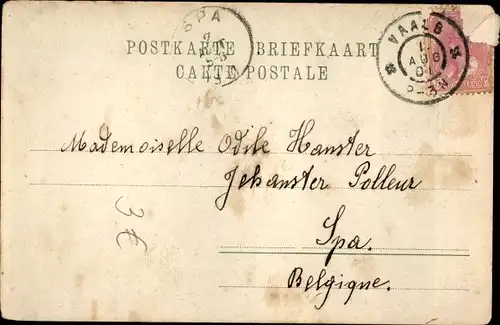 SPA
VAALS
1
AUG
01
POSTKARTE BRIEFKAART
CARTE POSTALE
Mademoiselle Odile Hanster
Jehanster Polleur
Spa.
Belgique.
3€